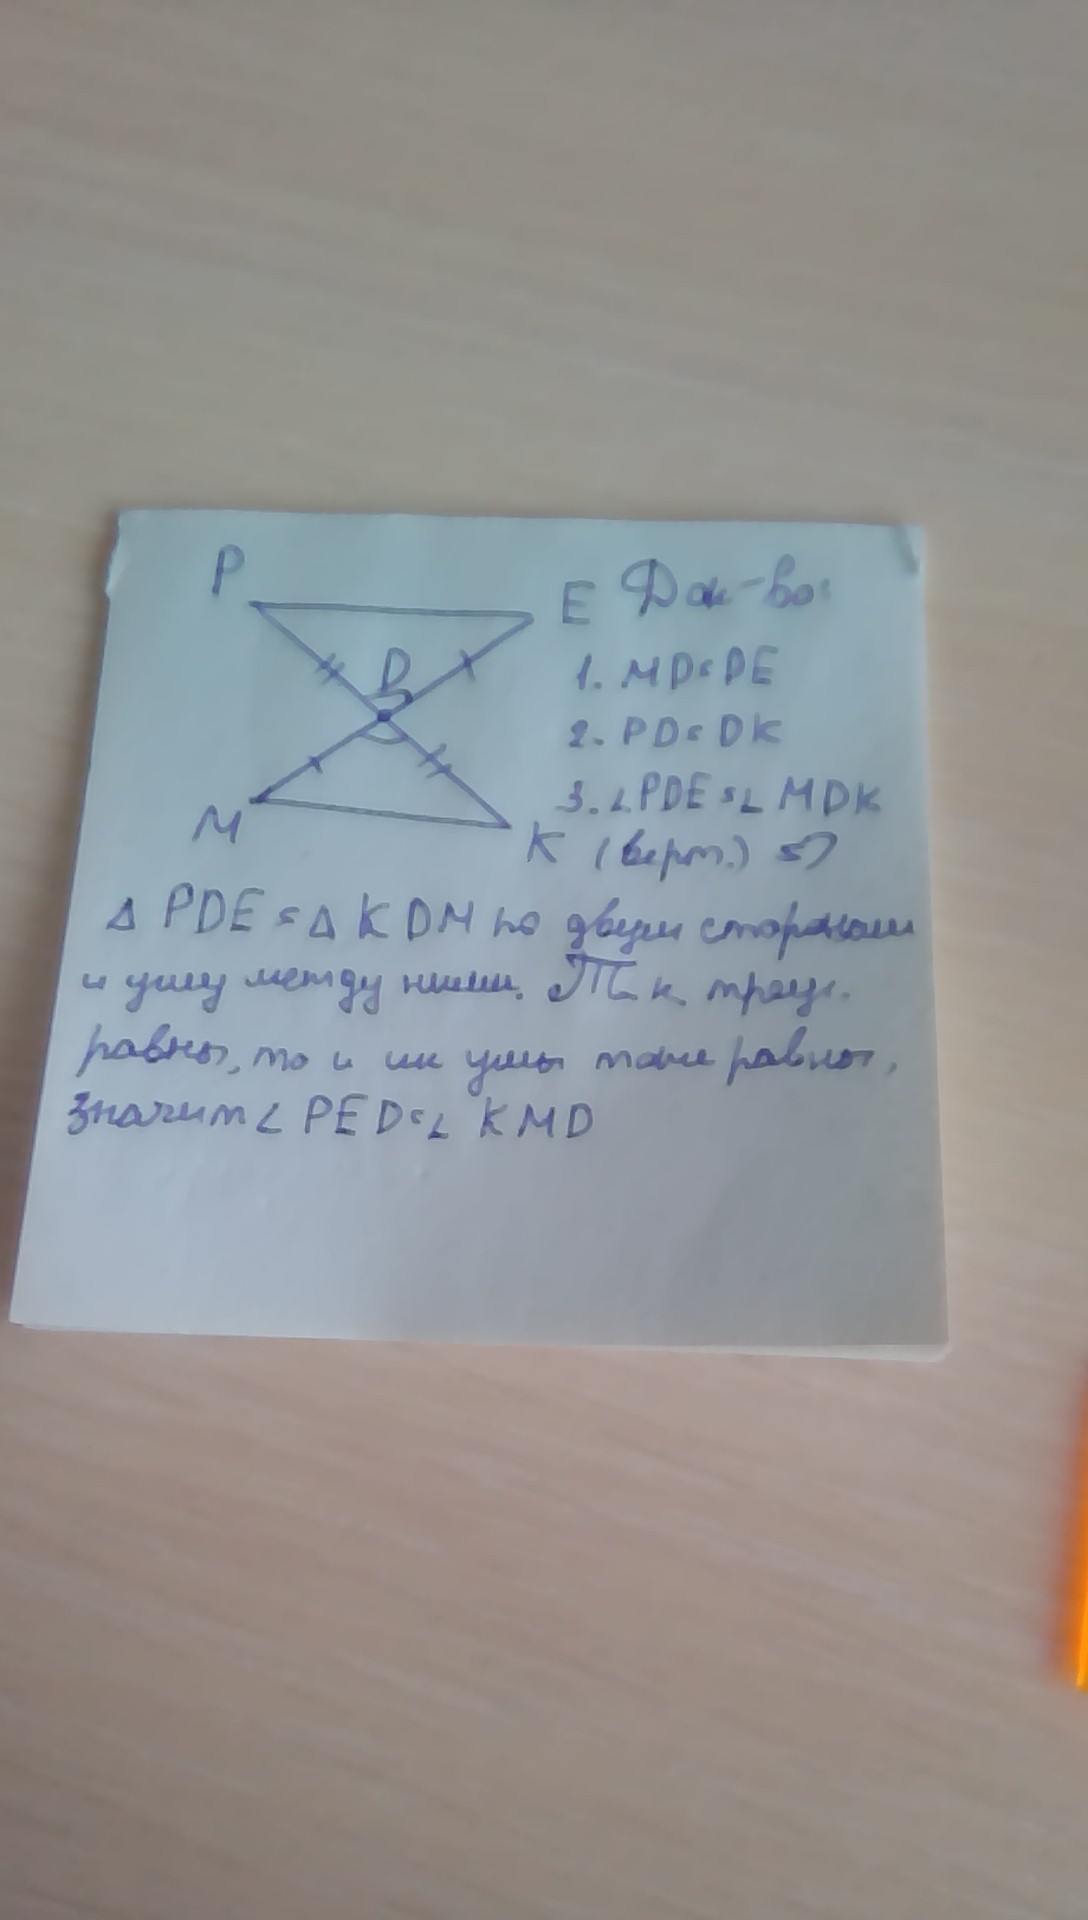 P
E Док-во:
D
1. MD=DE
2. PD=DK
3. ∠PDE=∠MDK
M
K (верт.) =>
Δ PDE=Δ KDM по двум сторонам
и углу между ними. Т.к. треуг.
равны, то и их углы тоже равны,
значит ∠PED=∠KMD